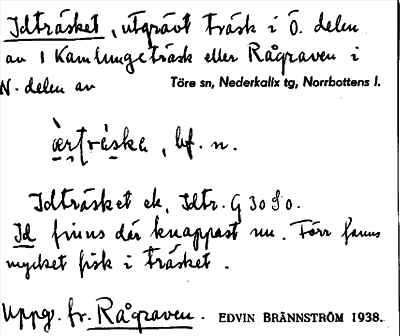 Idträsket, utgrävt träsk i Ö. delen
av 1 Kamlungeträsk eller Rågraven i
N. delen av Töre sn, Nederkalix tg, Norrbottens l.
bf. n.
Idträsket ek. Idtr. G 30 S0.
Id finns där knappast nu. Förr fanns
mycket fisk i träsket.
Uppg. fr. Rågraven. EDVIN BRÄNNSTRÖM 1938.